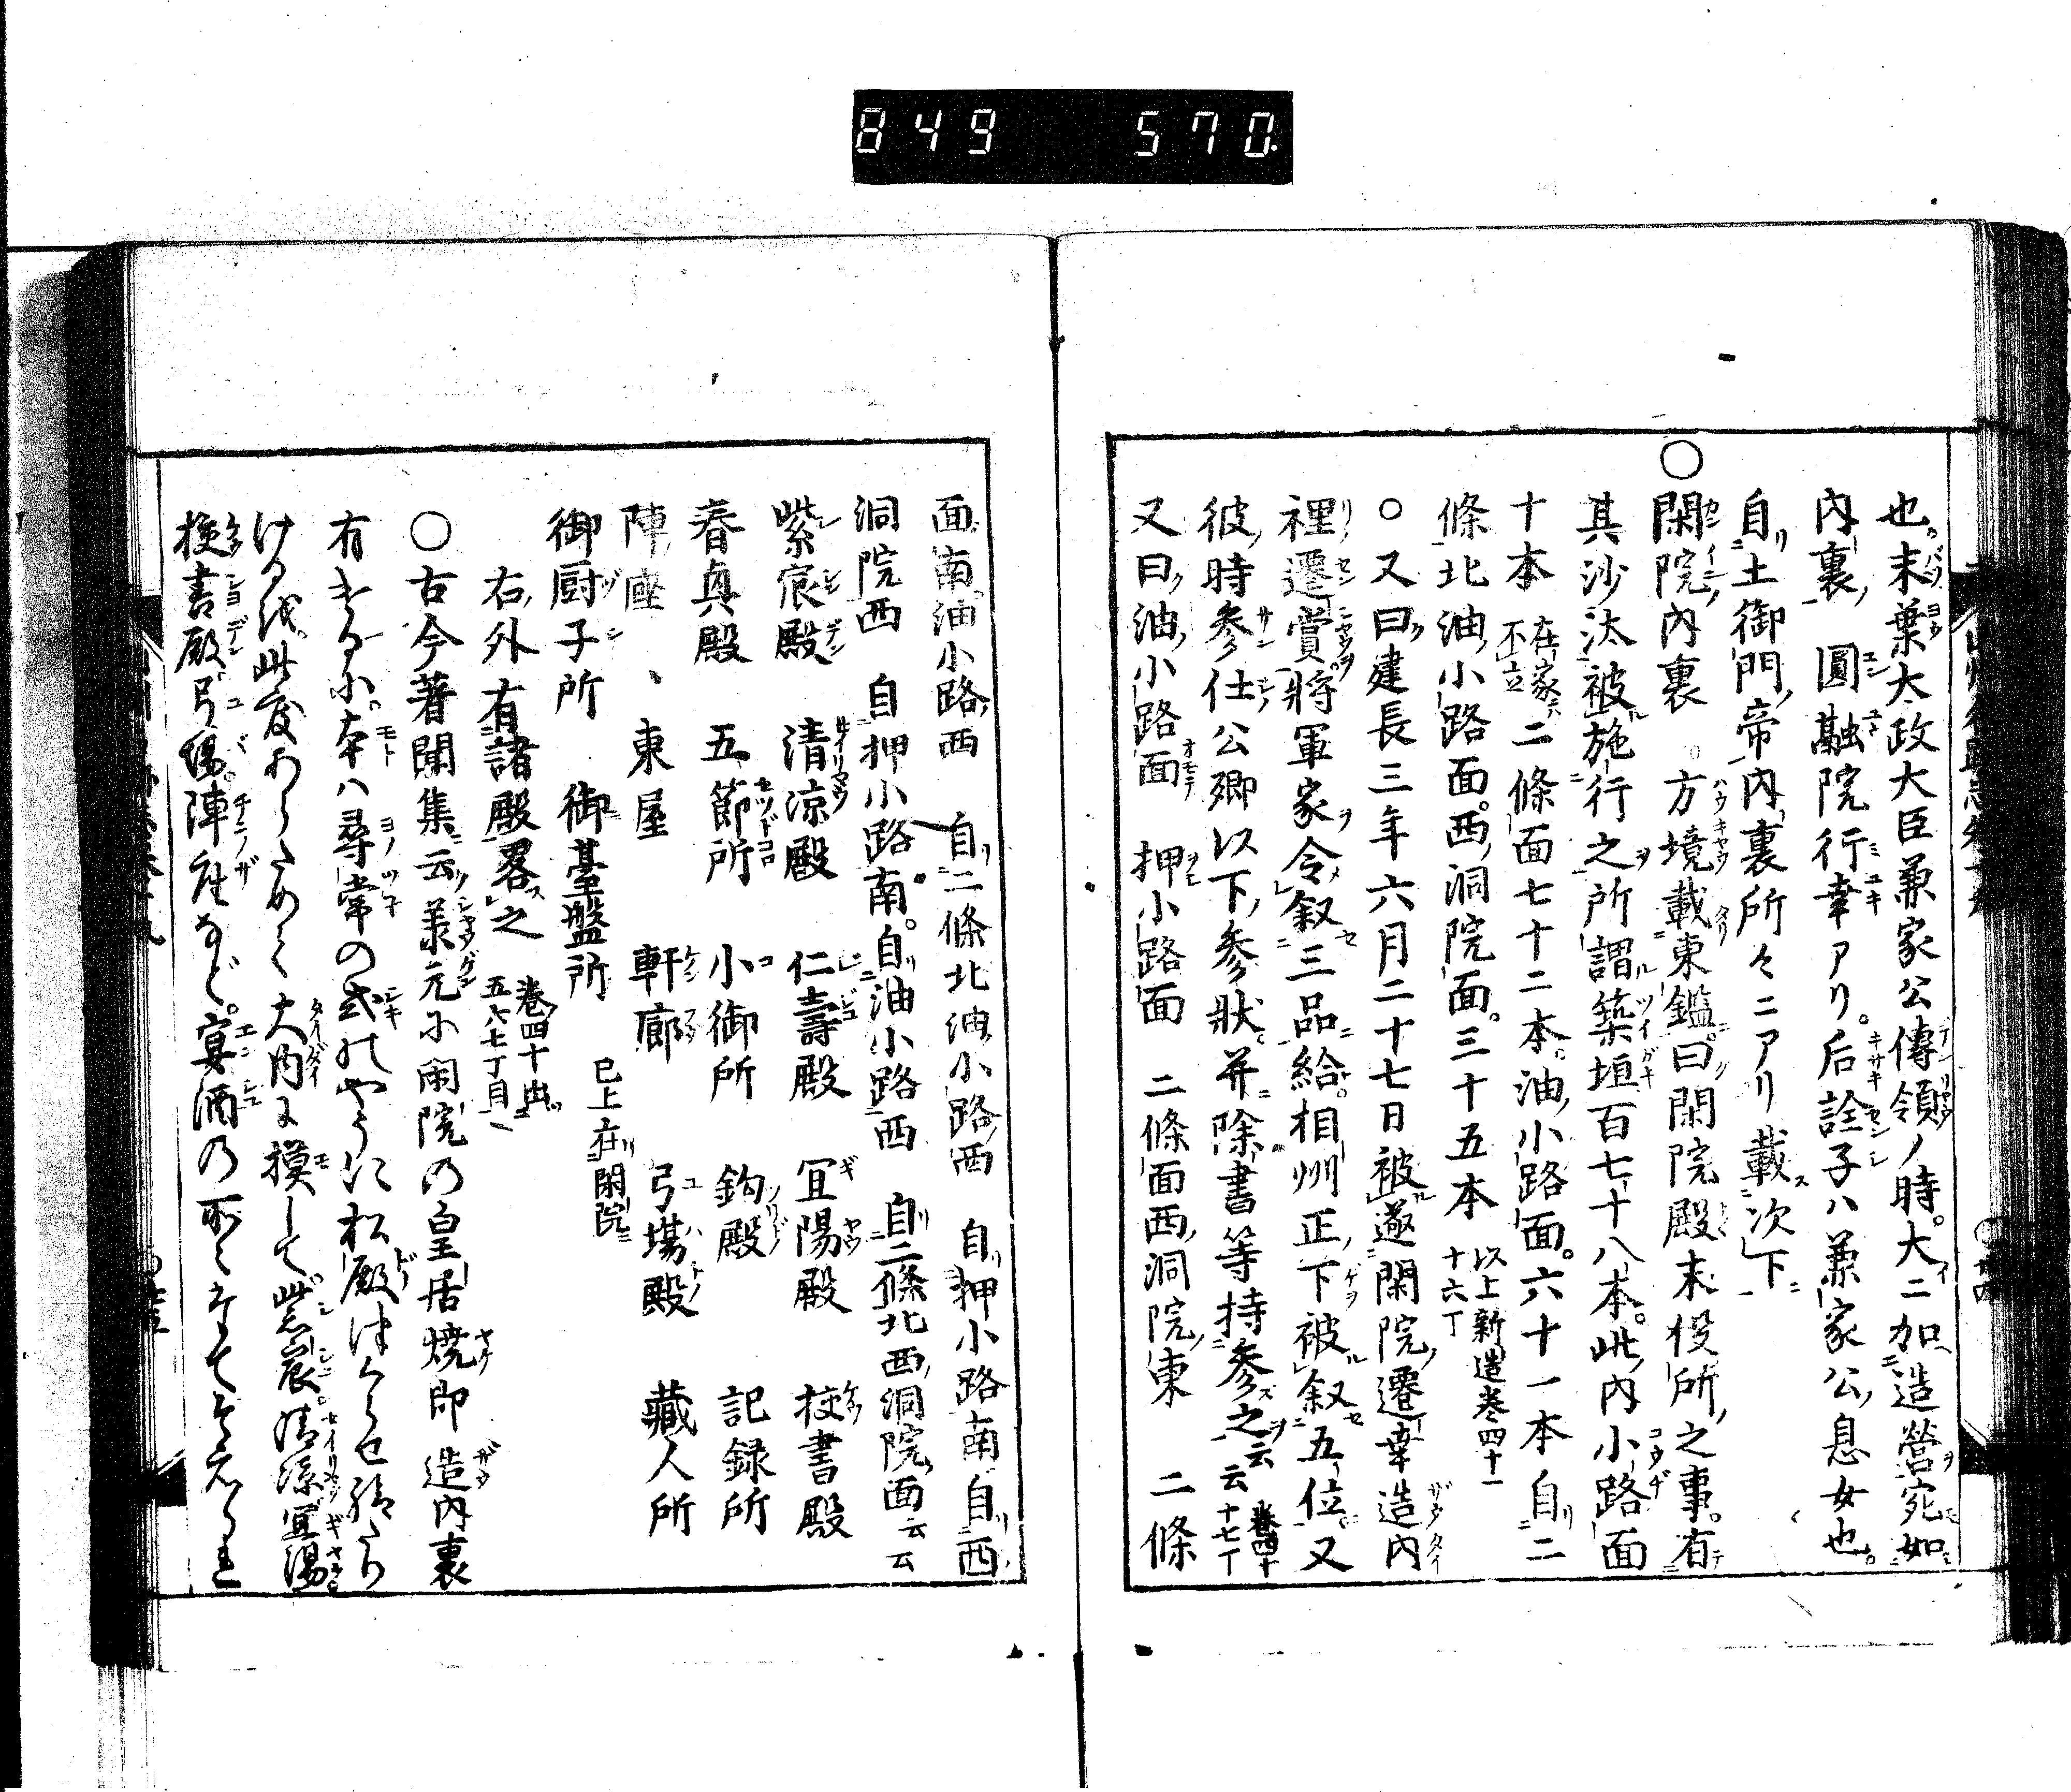 849 570.
也。末葉太政大臣兼家公傳領ノ時。大ニ加造營宛如
内裏 圓融院行幸アリ。后詮子ハ兼家公息女也。
自土御門帝内裏所々ニアリ載次下
○閑院内裏 方境載東鑑曰閑院殿末役所之事。有
其沙汰被施行之所謂築垣百七十八本。此内小路面
十本 在家不立 二條面七十二本。油小路面。六十一本自二
條北油小路面。西洞院面。三十五本 以上新造巻四十一 十六丁
○又曰建長三年六月二十七日被遂閑院遷幸造内
裡遷賞將軍家令叙三品給。相州正下被叙五位又
彼時參仕公卿以下參狀并除書等持參之云云 巻四十一 十七丁
又曰油小路面 押小路面 二條面西洞院東 二條
面南油小路西 自二條北油小路西 自押小路南自西
洞院西 自押小路南。自油小路西 自二條北西洞院面云云
紫宸殿 清凉殿 仁壽殿 冝陽殿 校書殿
春真殿 五節所 小御所 鈎殿 記録所
陣座 東屋 軒廊 弓塲殿 藏人所
御厨子所 御臺盤所 已上在閑院
右外有諸殿畧之 巻四十出 五六七丁目
○古今著聞集云 元に閑院の皇居焼即造内裏
有けるに。本ハ尋常の式のやうに松殿つくらせ給たり
けるを此度あらためて大内に摸して紫宸。清凉冝陽
校書殿。弓塲。陣座など。宴酒の所々をそへられ